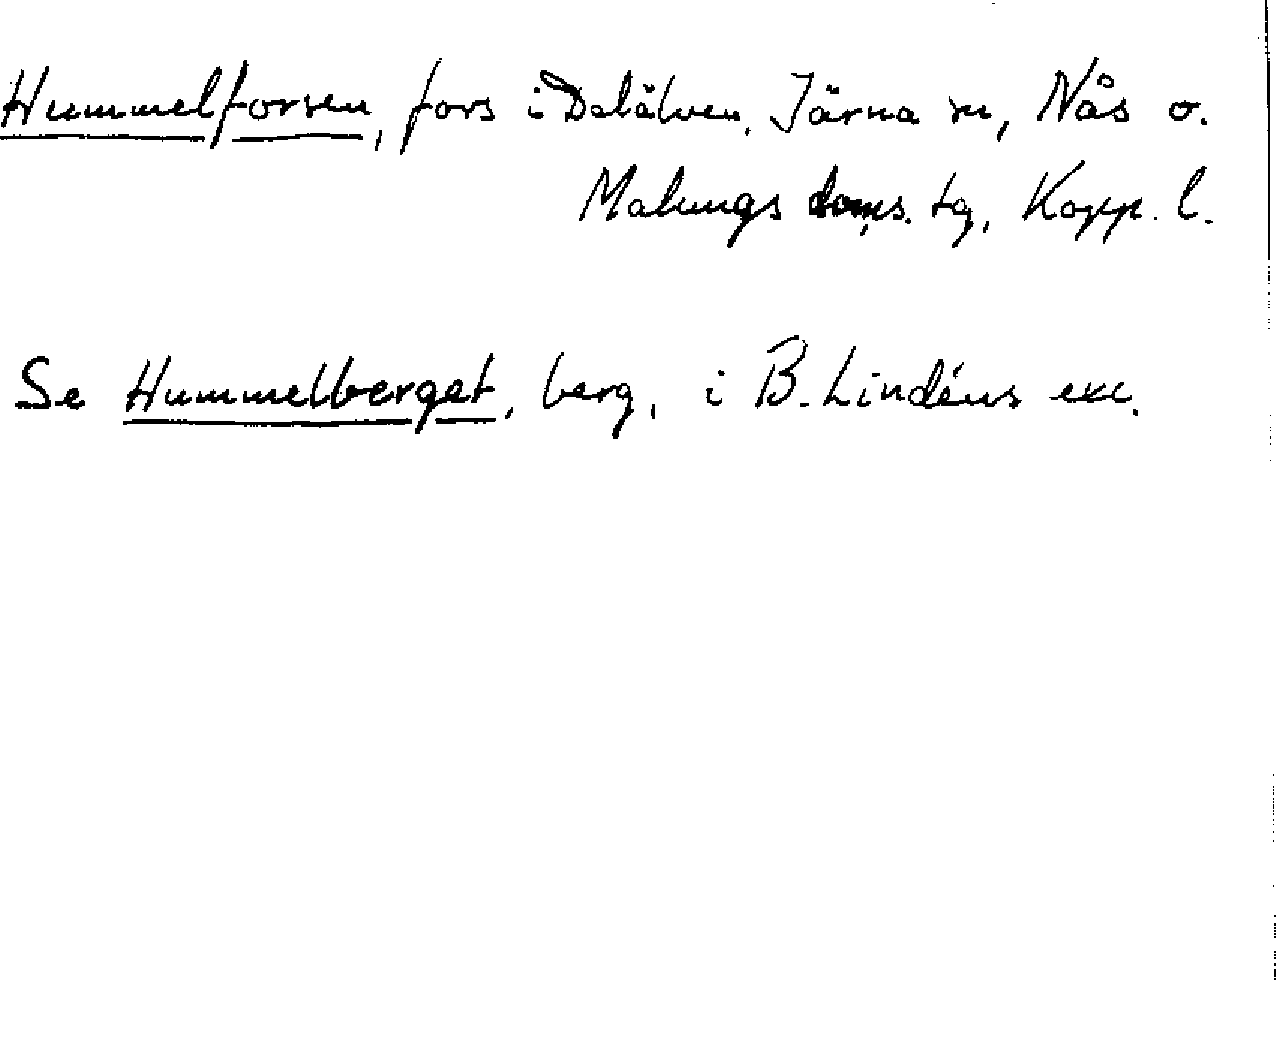 Hummelforsen, fors i Dalälven, Järna sn, Nås o.
Malungs doms. tg, Kopp. l.
Se Hummelberget, berg, i B. Lindéns exc.